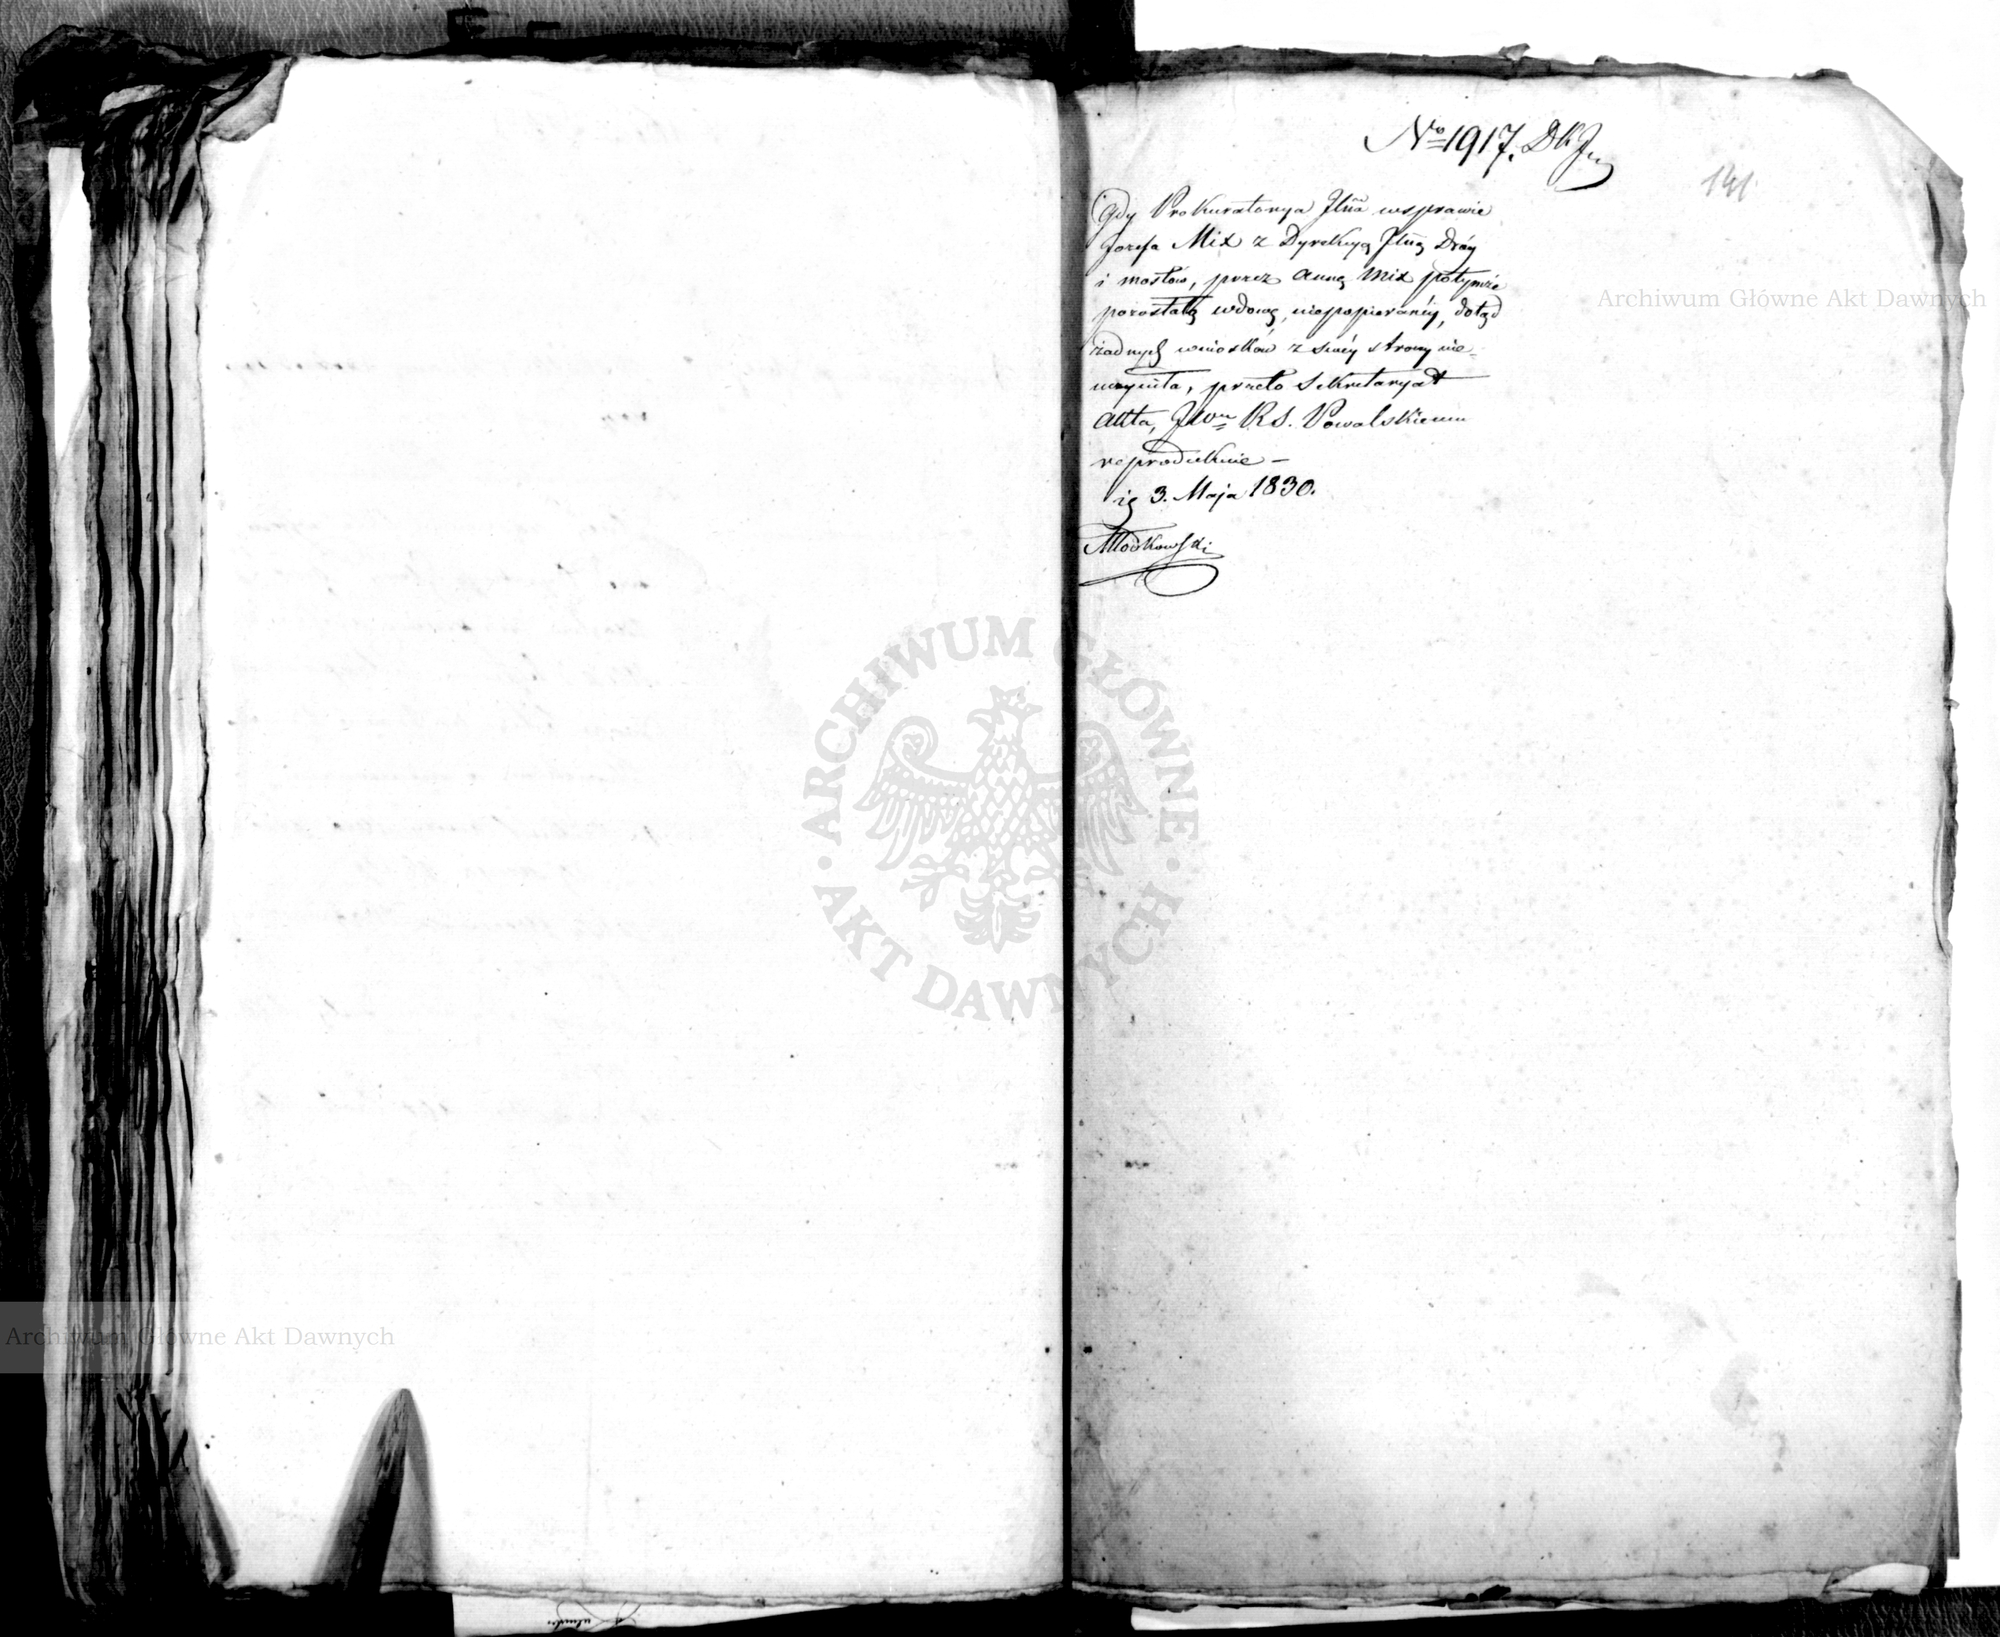 No 1917.
141
Gdy Prokuratorya Jlna wsprawie
Jozefa Mix z Dyrekcyą Jlną Dróg
i mostów, przez Annę Mix potymże
pozostałą wdowę, niepopieranéy, dotąd
żadnych wniosków z swéy strony nie
uczyniła, przeto Sekretaryat
Akta, JWu RS. Powalskiemu
reprodukuie –
3. Maja 1830.
Archiwum Główne Akt Dawnych
ARCHIWUM GŁÓWNE
AKT DAWNYCH
Archiwum Główne Akt Dawnych